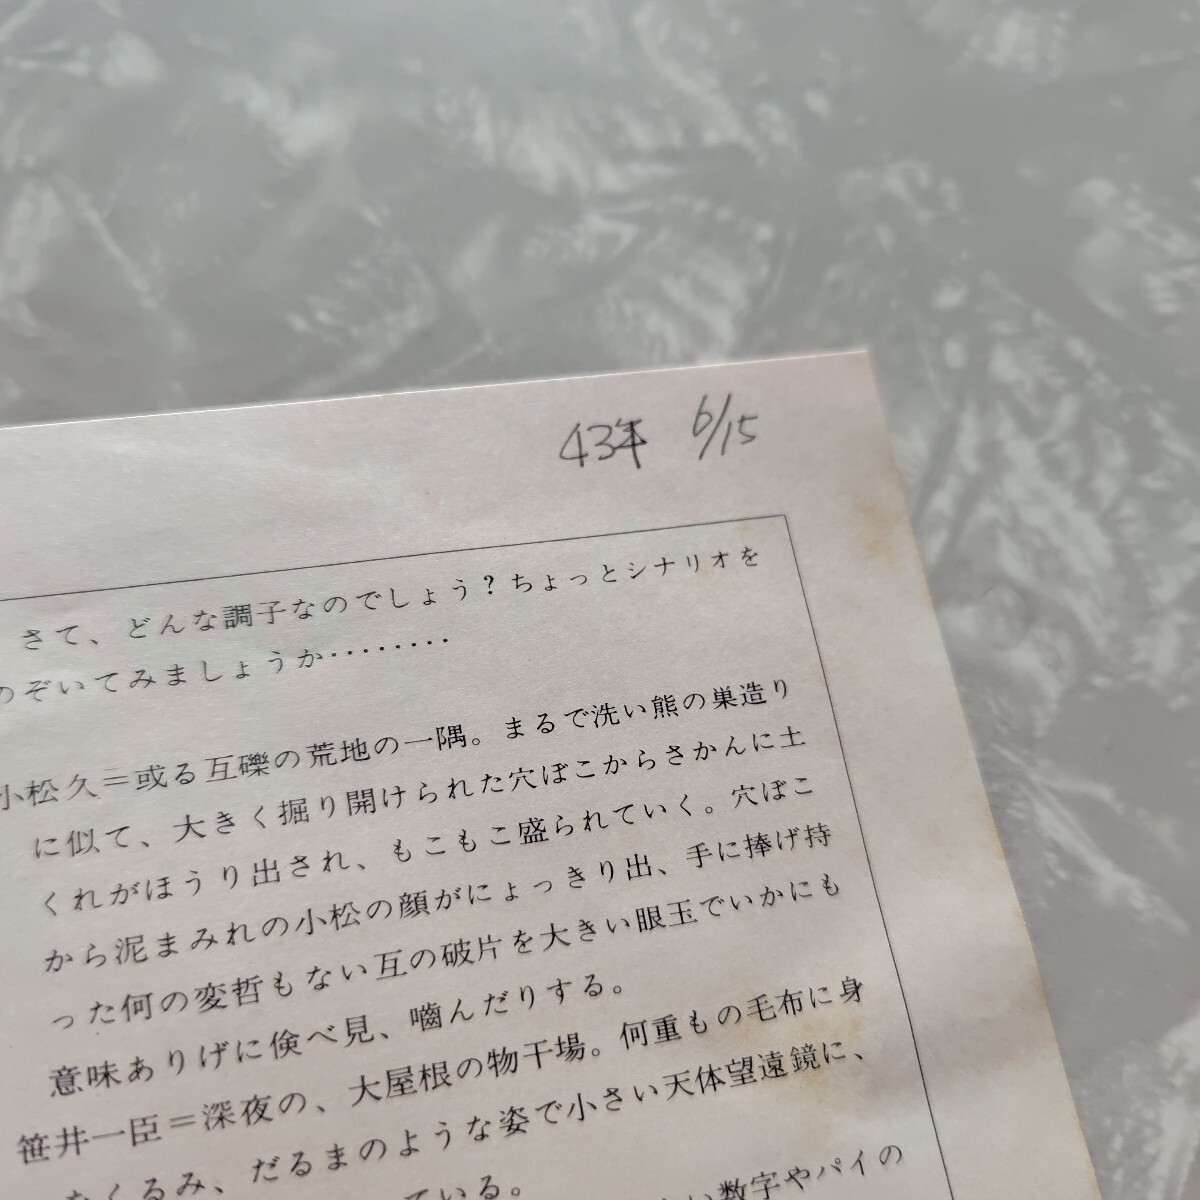 43年 6/15
さて、どんな調子なのでしょう?ちょっとシナリオを
のぞいてみましょうか・・・・・・・・
小松久=或る互礫の荒地の一隅。まるで洗い熊の巣造り
に似て、大きく掘り開けられた穴ぼこからさかんに土
くれがほうり出され、もこもこ盛られていく。穴ぼこ
から泥まみれの小松の顔がにょっきり出、手に捧げ持
った何の変哲もない互の破片を大きい眼玉でいかにも
意味ありげに倹べ見、嚙んだりする。
笹井一臣=深夜の、大屋根の物干場。何重もの毛布に身
をくるみ、だるまのような姿で小さい天体望遠鏡に、
ている。
い数字やパイの